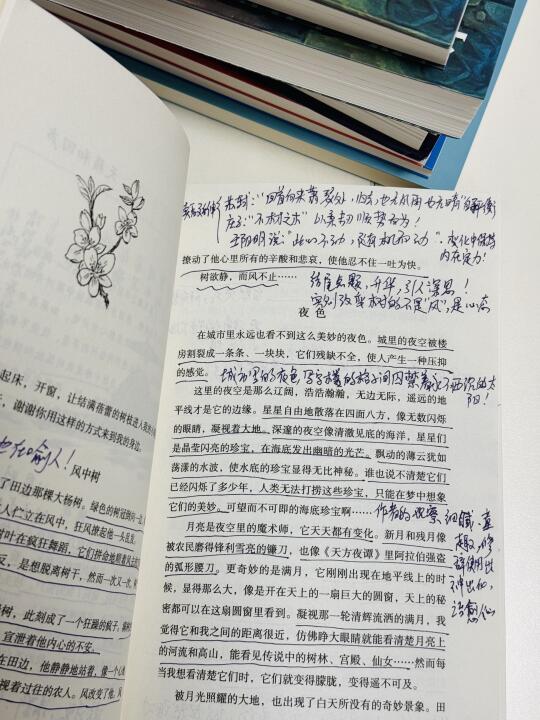 起床，开窗，让结满蓓蕾的树枝进入我的
，谢谢你用这样的方式来到我的身边。
也在俞人！
风中树
了田边那棵大杨树。绿色的树冠膨向一
人伫立在风中，狂风撩起他一头乱
树叶在疯狂舞蹈，它们拼命地顺着风
反，是想脱离树干，然而一次又一次，
树，此刻成了一个狂躁的疯子，
宣泄着他内心的不安。
在田边，他静静地站着，像一个
视着过往的农人。风改变了他，风
苏轼：“回首向来萧瑟处，归去，也无风雨也无晴”
庄子：“不材之木” 以柔韧顺势为！
王阳明说：“此心不动，随机而动”，变化中保持
内在定力！
撩动了他心里所有的辛酸和悲哀，使他忍不住一吐为快。
树欲静，而风不止……
结尾点题，升华，引人深思！
实则改变树的不是“风”，是心态
夜 色
在城市里永远也看不到这么美妙的夜色。城里的夜空被楼
房割裂成一条条、一块块，它们残缺不全，使人产生一种压抑
的感觉。
城市里的夜色，写字楼的格子间囚禁着永不西沉的太
阳！
这里的夜空是那么辽阔，浩浩瀚瀚，无边无际，遥远的地
平线才是它的边缘。星星自由地散落在四面八方，像无数闪烁
的眼睛，凝视着大地。深邃的夜空像清澈见底的海洋，星星们
是晶莹闪亮的珍宝，在海底发出幽暗的光芒。飘动的薄云犹如
荡漾的水波，使水底的珍宝显得无比神秘。谁也说不清楚它们
已经闪烁了多少年，人类无法打捞这些珍宝，只能在梦中想象
它们的美妙。可望而不可即的海底珍宝啊……
作者的观察，细腻、童
趣，修
辞使用出
神出化，
沁人心
月亮是夜空里的魔术师，它天天都有变化。新月和残月像
被农民磨得锋利雪亮的镰刀，也像《天方夜谭》里阿拉伯强盗
的弧形腰刀。更奇妙的是满月，它刚刚出现在地平线上的时
候，显得那么大，像是开在天上的一扇巨大的圆窗，天上的秘
密都可以在这扇圆窗里看到。凝视那一轮清辉流洒的满月，我
觉得它和我之间的距离很近，仿佛睁大眼睛就能看清楚月亮上
的河流和高山，能看见传说中的树林、宫殿、仙女……然而每
当我想看清楚它们时，它们就变得朦胧，变得遥不可及。
被月光照耀的大地，也出现了白天所没有的奇妙景象。田